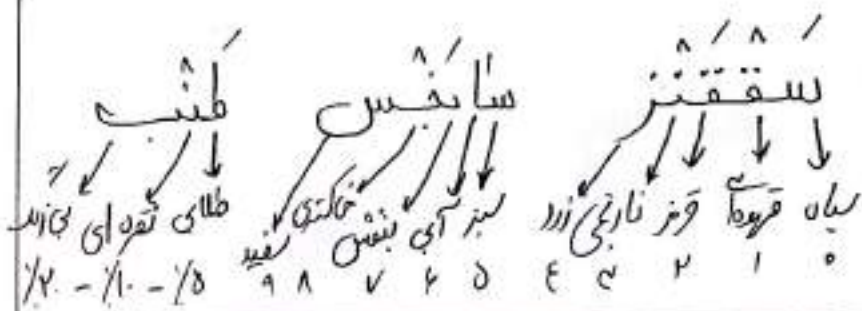 سَقْقَنْز سابْخس طَنْب
سیاه قهوه‌ای قرمز نارنجی زرد سبز آبی بنفش خاکستری سفید طلایی نقره ای بی رنگ
۰ ۱ ۲ ۳ ۴ ۵ ۶ ۷ ۸ ۹ ٪۵ - ٪۱۰ - ٪۲۰